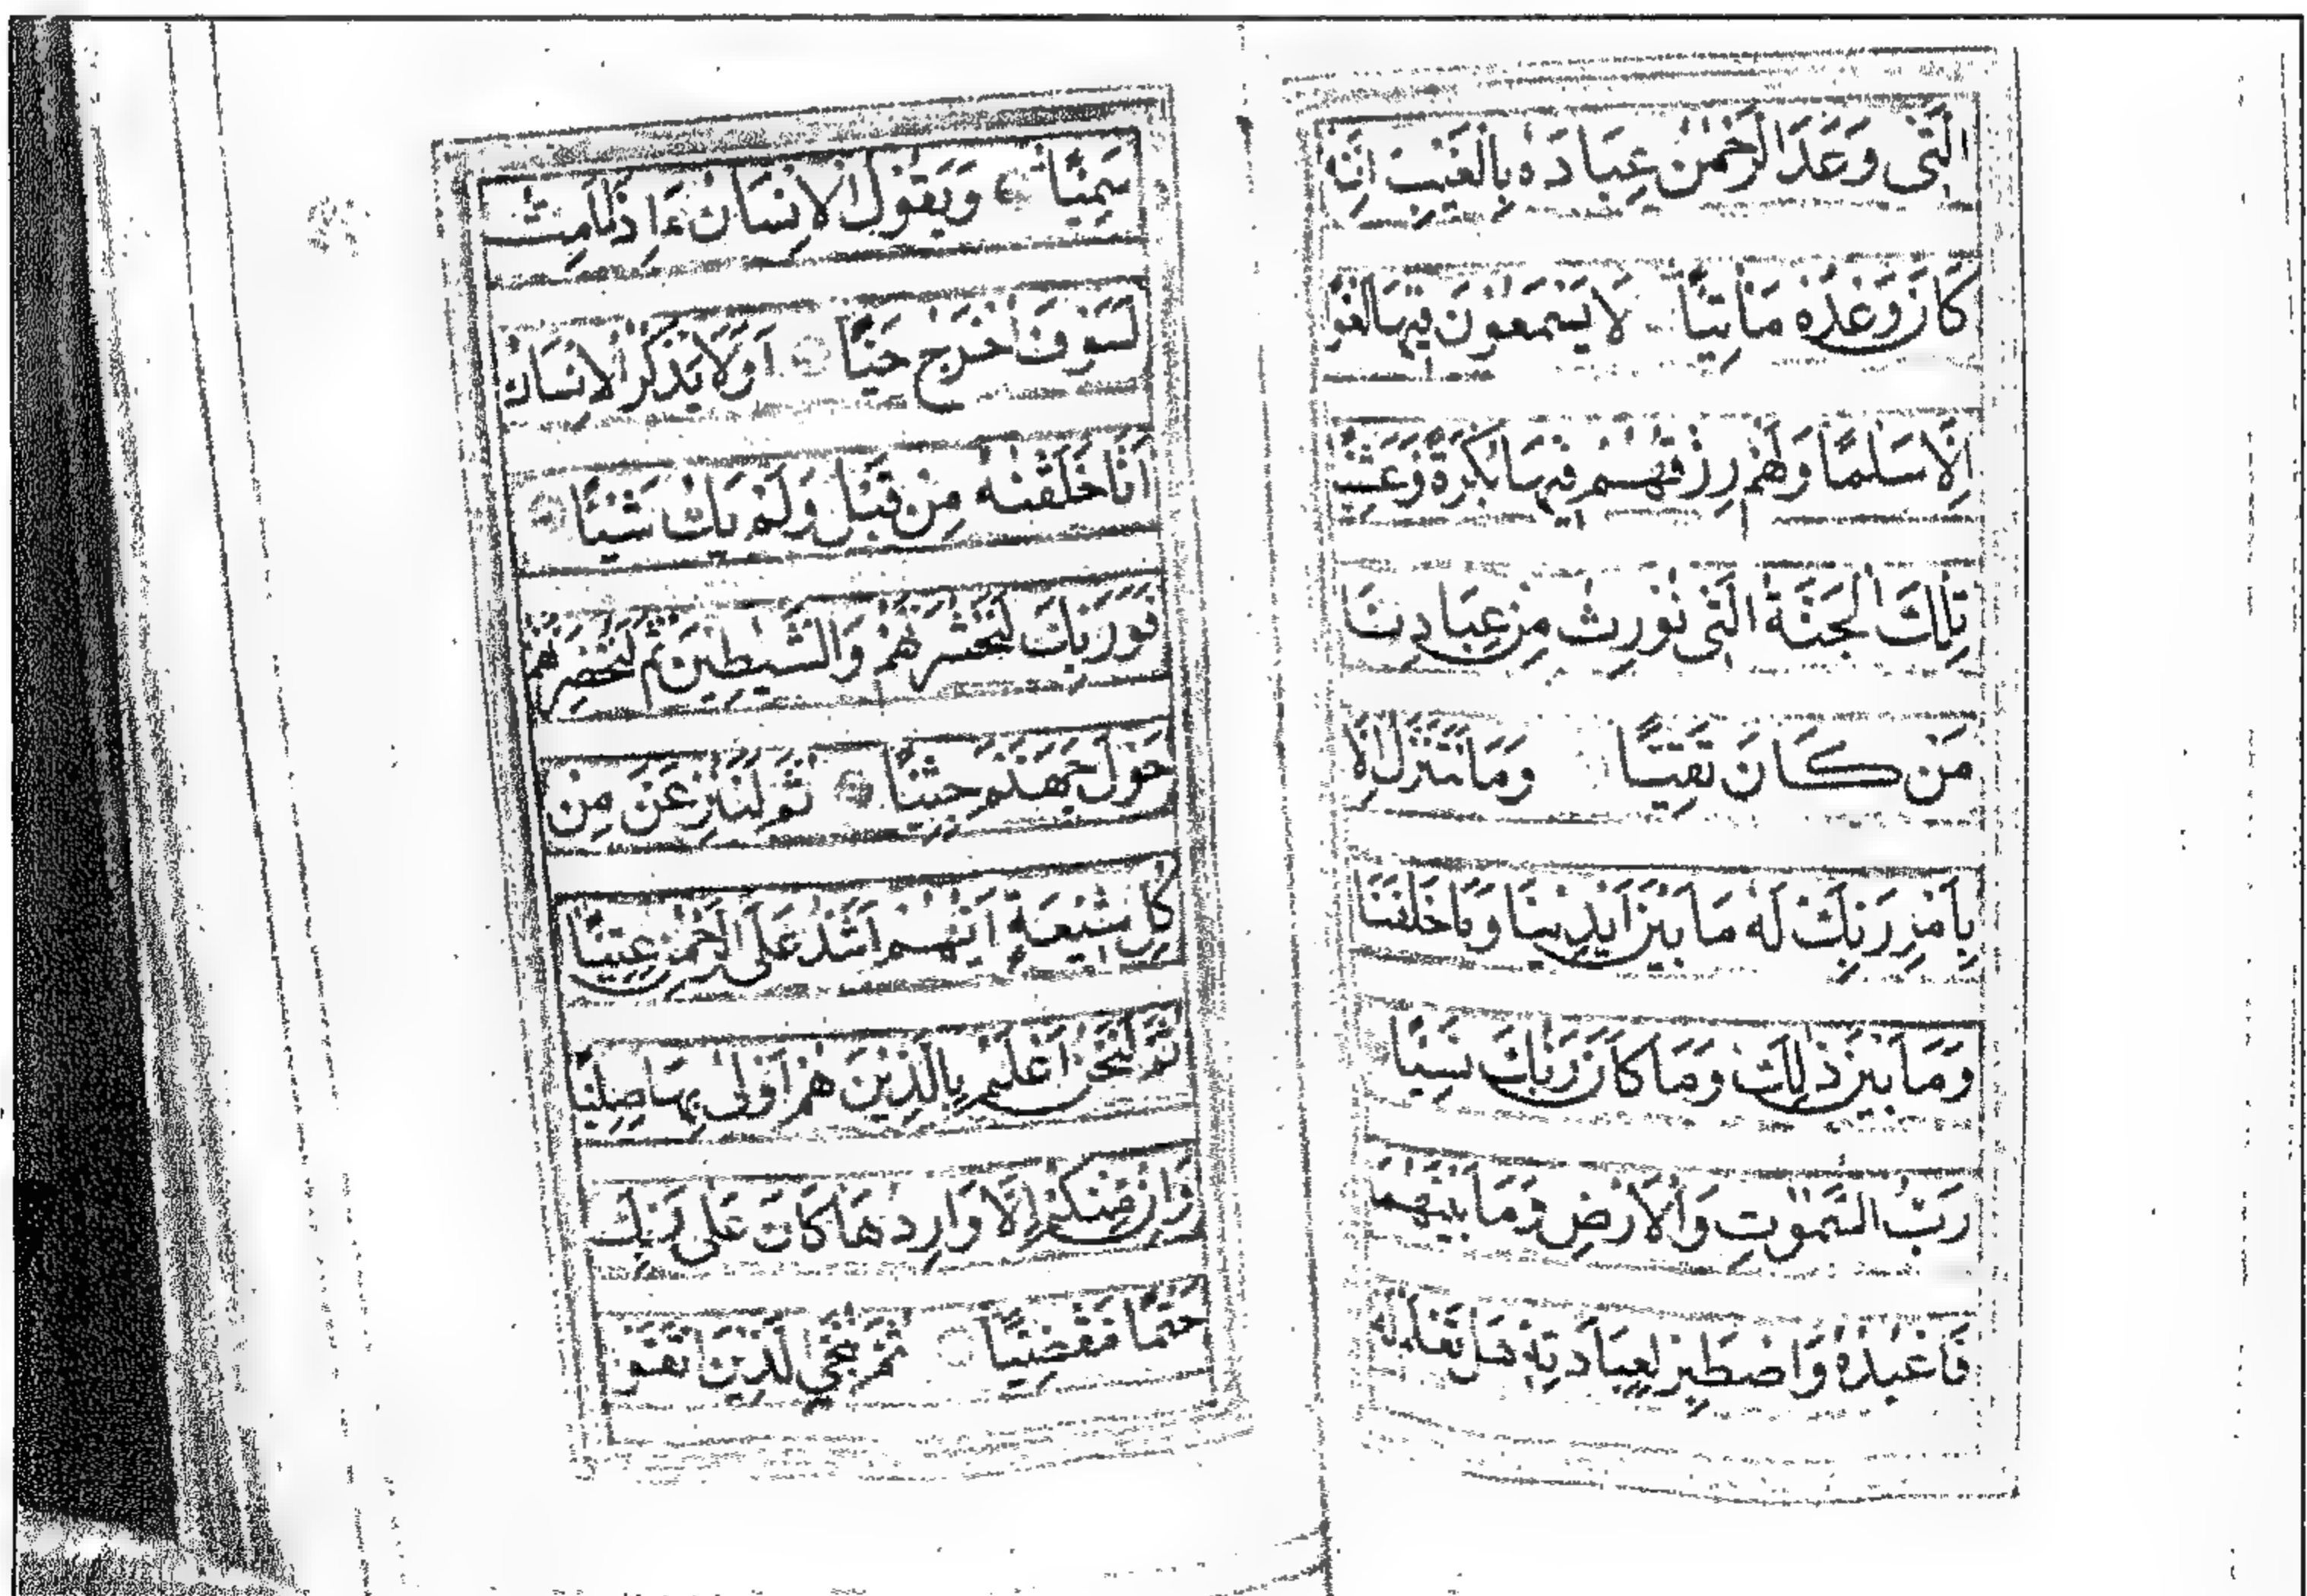 الَّتِي وَعَدَ الرَّحْمٰنُ عِبَادَهُ بِالْغَيْبِ اِنَّهُ
كَانَ وَعْدُهُ مَأْتِيًّا لَا يَسْمَعُونَ فِيهَا لَغْوًا
اِلَّا سَلٰمًا وَلَهُمْ رِزْقُهُمْ فِيهَا بُكْرَةً وَعَشِيًّا
تِلْكَ الْجَنَّةُ الَّتِي نُورِثُ مِنْ عِبَادِنَا
مَنْ كَانَ تَقِيًّا وَمَا نَتَنَزَّلُ اِلَّا
بِأَمْرِ رَبِّكَ لَهُ مَا بَيْنَ اَيْدِينَا وَمَا خَلْفَنَا
وَمَا بَيْنَ ذٰلِكَ وَمَا كَانَ رَبُّكَ نَسِيًّا
رَبُّ السَّمٰوٰتِ وَالْاَرْضِ وَمَا بَيْنَهُمَا
فَاعْبُدْهُ وَاصْطَبِرْ لِعِبَادَتِهِ هَلْ تَعْلَمُ لَهُ
سَمِيًّا وَيَقُولُ الْاِنْسَانُ ءَاِذَا مَا مِتُّ
لَسَوْفَ اُخْرَجُ حَيًّا اَوَلَا يَذْكُرُ الْاِنْسَانُ
اَنَّا خَلَقْنٰهُ مِنْ قَبْلُ وَلَمْ يَكُ شَيْئًا
فَوَرَبِّكَ لَنَحْشُرَنَّهُمْ وَالشَّيٰطِينَ ثُمَّ لَنُحْضِرَنَّهُمْ
حَوْلَ جَهَنَّمَ جِثِيًّا ثُمَّ لَنَنْزِعَنَّ مِنْ
كُلِّ شِيعَةٍ اَيُّهُمْ اَشَدُّ عَلَى الرَّحْمٰنِ عِتِيًّا
ثُمَّ لَنَحْنُ اَعْلَمُ بِالَّذِينَ هُمْ اَوْلٰى بِهَا صِلِيًّا
وَاِنْ مِنْكُمْ اِلَّا وَارِدُهَا كَانَ عَلٰى رَبِّكَ
حَتْمًا مَقْضِيًّا ثُمَّ نُنَجِّي الَّذِينَ اتَّقَوْا